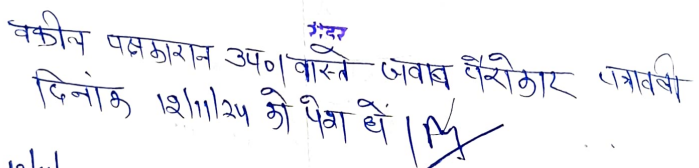 वकील पक्षकारान उप० । वास्ते जवाब पैरोकार पत्रावली
दिनांक 12/11/24 को पेश हो ।